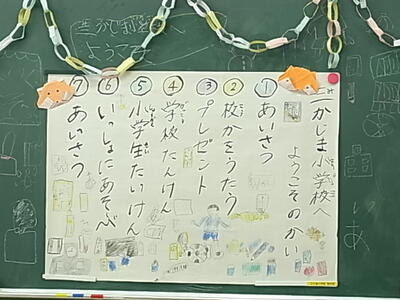 三かじま小学校へ
ようこそのかい
① あいさつ
② 校かをうたう
③ プレゼント
④ 学校たんけん
⑤ 小学生たいけん
⑥ いっしょにあそぶ
⑦ あいさつ
ようこそ